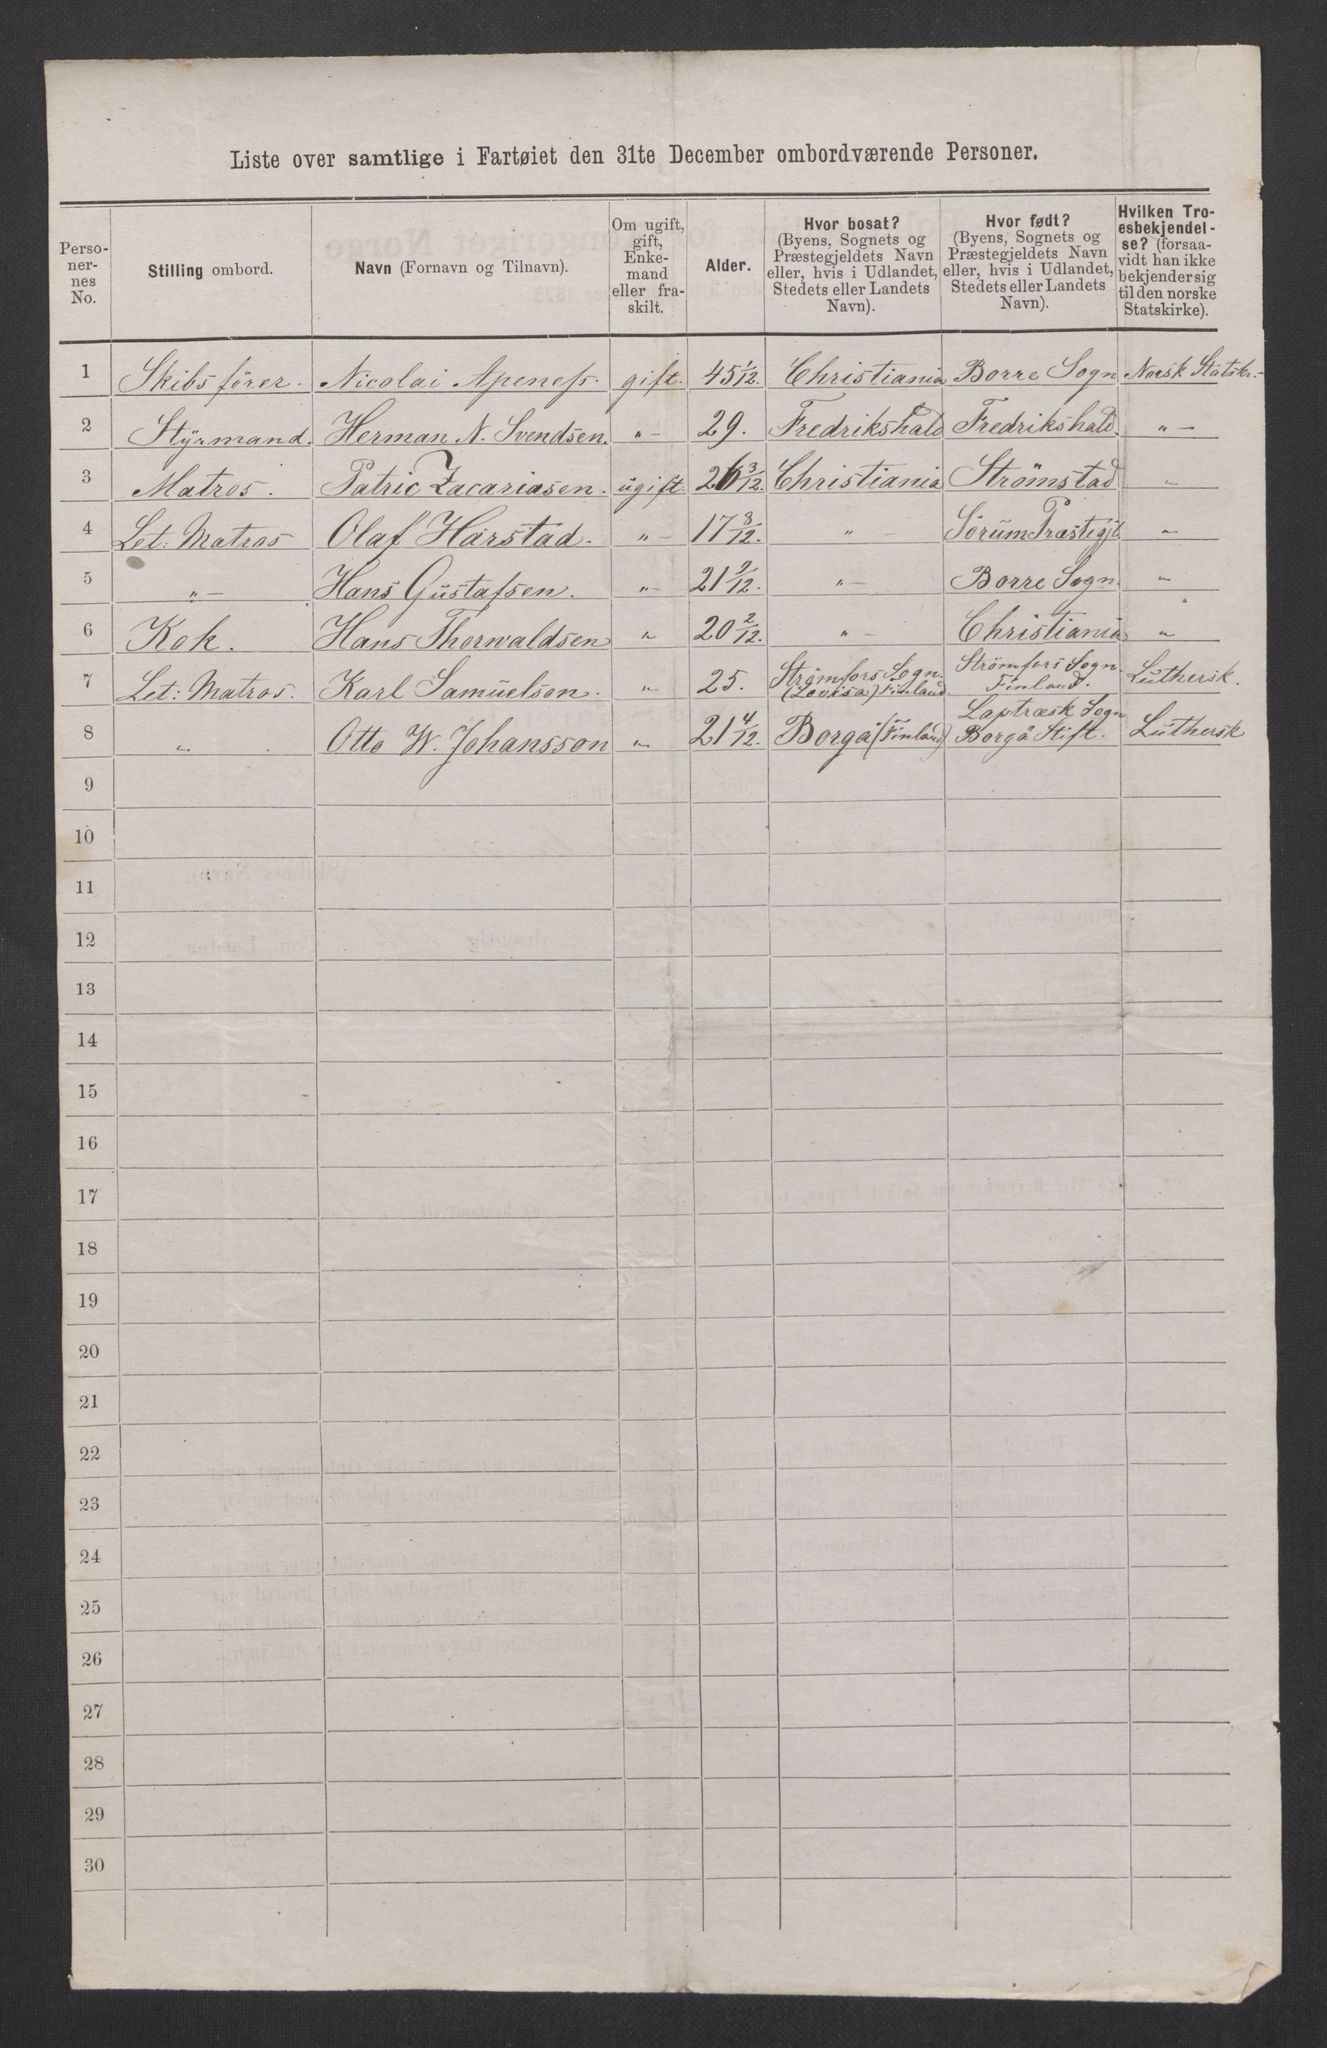 Liste over samtlige i Fartøiet den 31te December ombordværende Personer.
Perso-
ner-
nes
No.
Stilling ombord.
Navn (Fornavn og Tilnavn).
Om ugift,
gift,
Enke-
mand
eller fra-
skilt.
Alder.
Hvor bosat?
(Byens, Sognets og
Præstegjeldets Navn
eller, hvis i Udlandet,
Stedets eller Landets
Navn).
Hvor født?
(Byens, Sognets og
Præstegjeldets Navn
eller, hvis i Udlandet,
Stedets eller Landets
Navn).
Hvilken Tro-
esbekjendel-
se? (forsaa-
vidt han ikke
bekjender sig
til den norske
Statskirke).
1 Skibsfører. Nicolai Apenes. gift. 45 1/12. Christiania Borre Sogn Norsk Statskr.-
2 Styrmand. Herman N. Svendsen. "- 29. Fredrikshald Fredrikshald. "-
3 Matros. Patric Zacariasen. ugift 26 3/12. Christiania Strömstad "
4 Let: Matros Olaf Harstad. "- 17 8/12. "- Sörum Præstegjt. "-
5 "- Hans Gustafsen. "- 21 2/12. "- Borre Sogn. "
6 Kok. Hans Thorwaldsen " 20 2/12. "- Christiania "
7 Let: Matros. Karl Samuelson. " 25. Strømfors Sogn. (Lovisa) Finland Strömfors Sogn. Finland. Luthersk.
8 " Otto W. Johansson " 21 4/12. Borgå (Finland) Laptræsk Sogn Borgå Stift. Luthersk
9
10
11
12
13
14
15
16
17
18
19
20
21
22
23
24
25
26
27
28
29
30